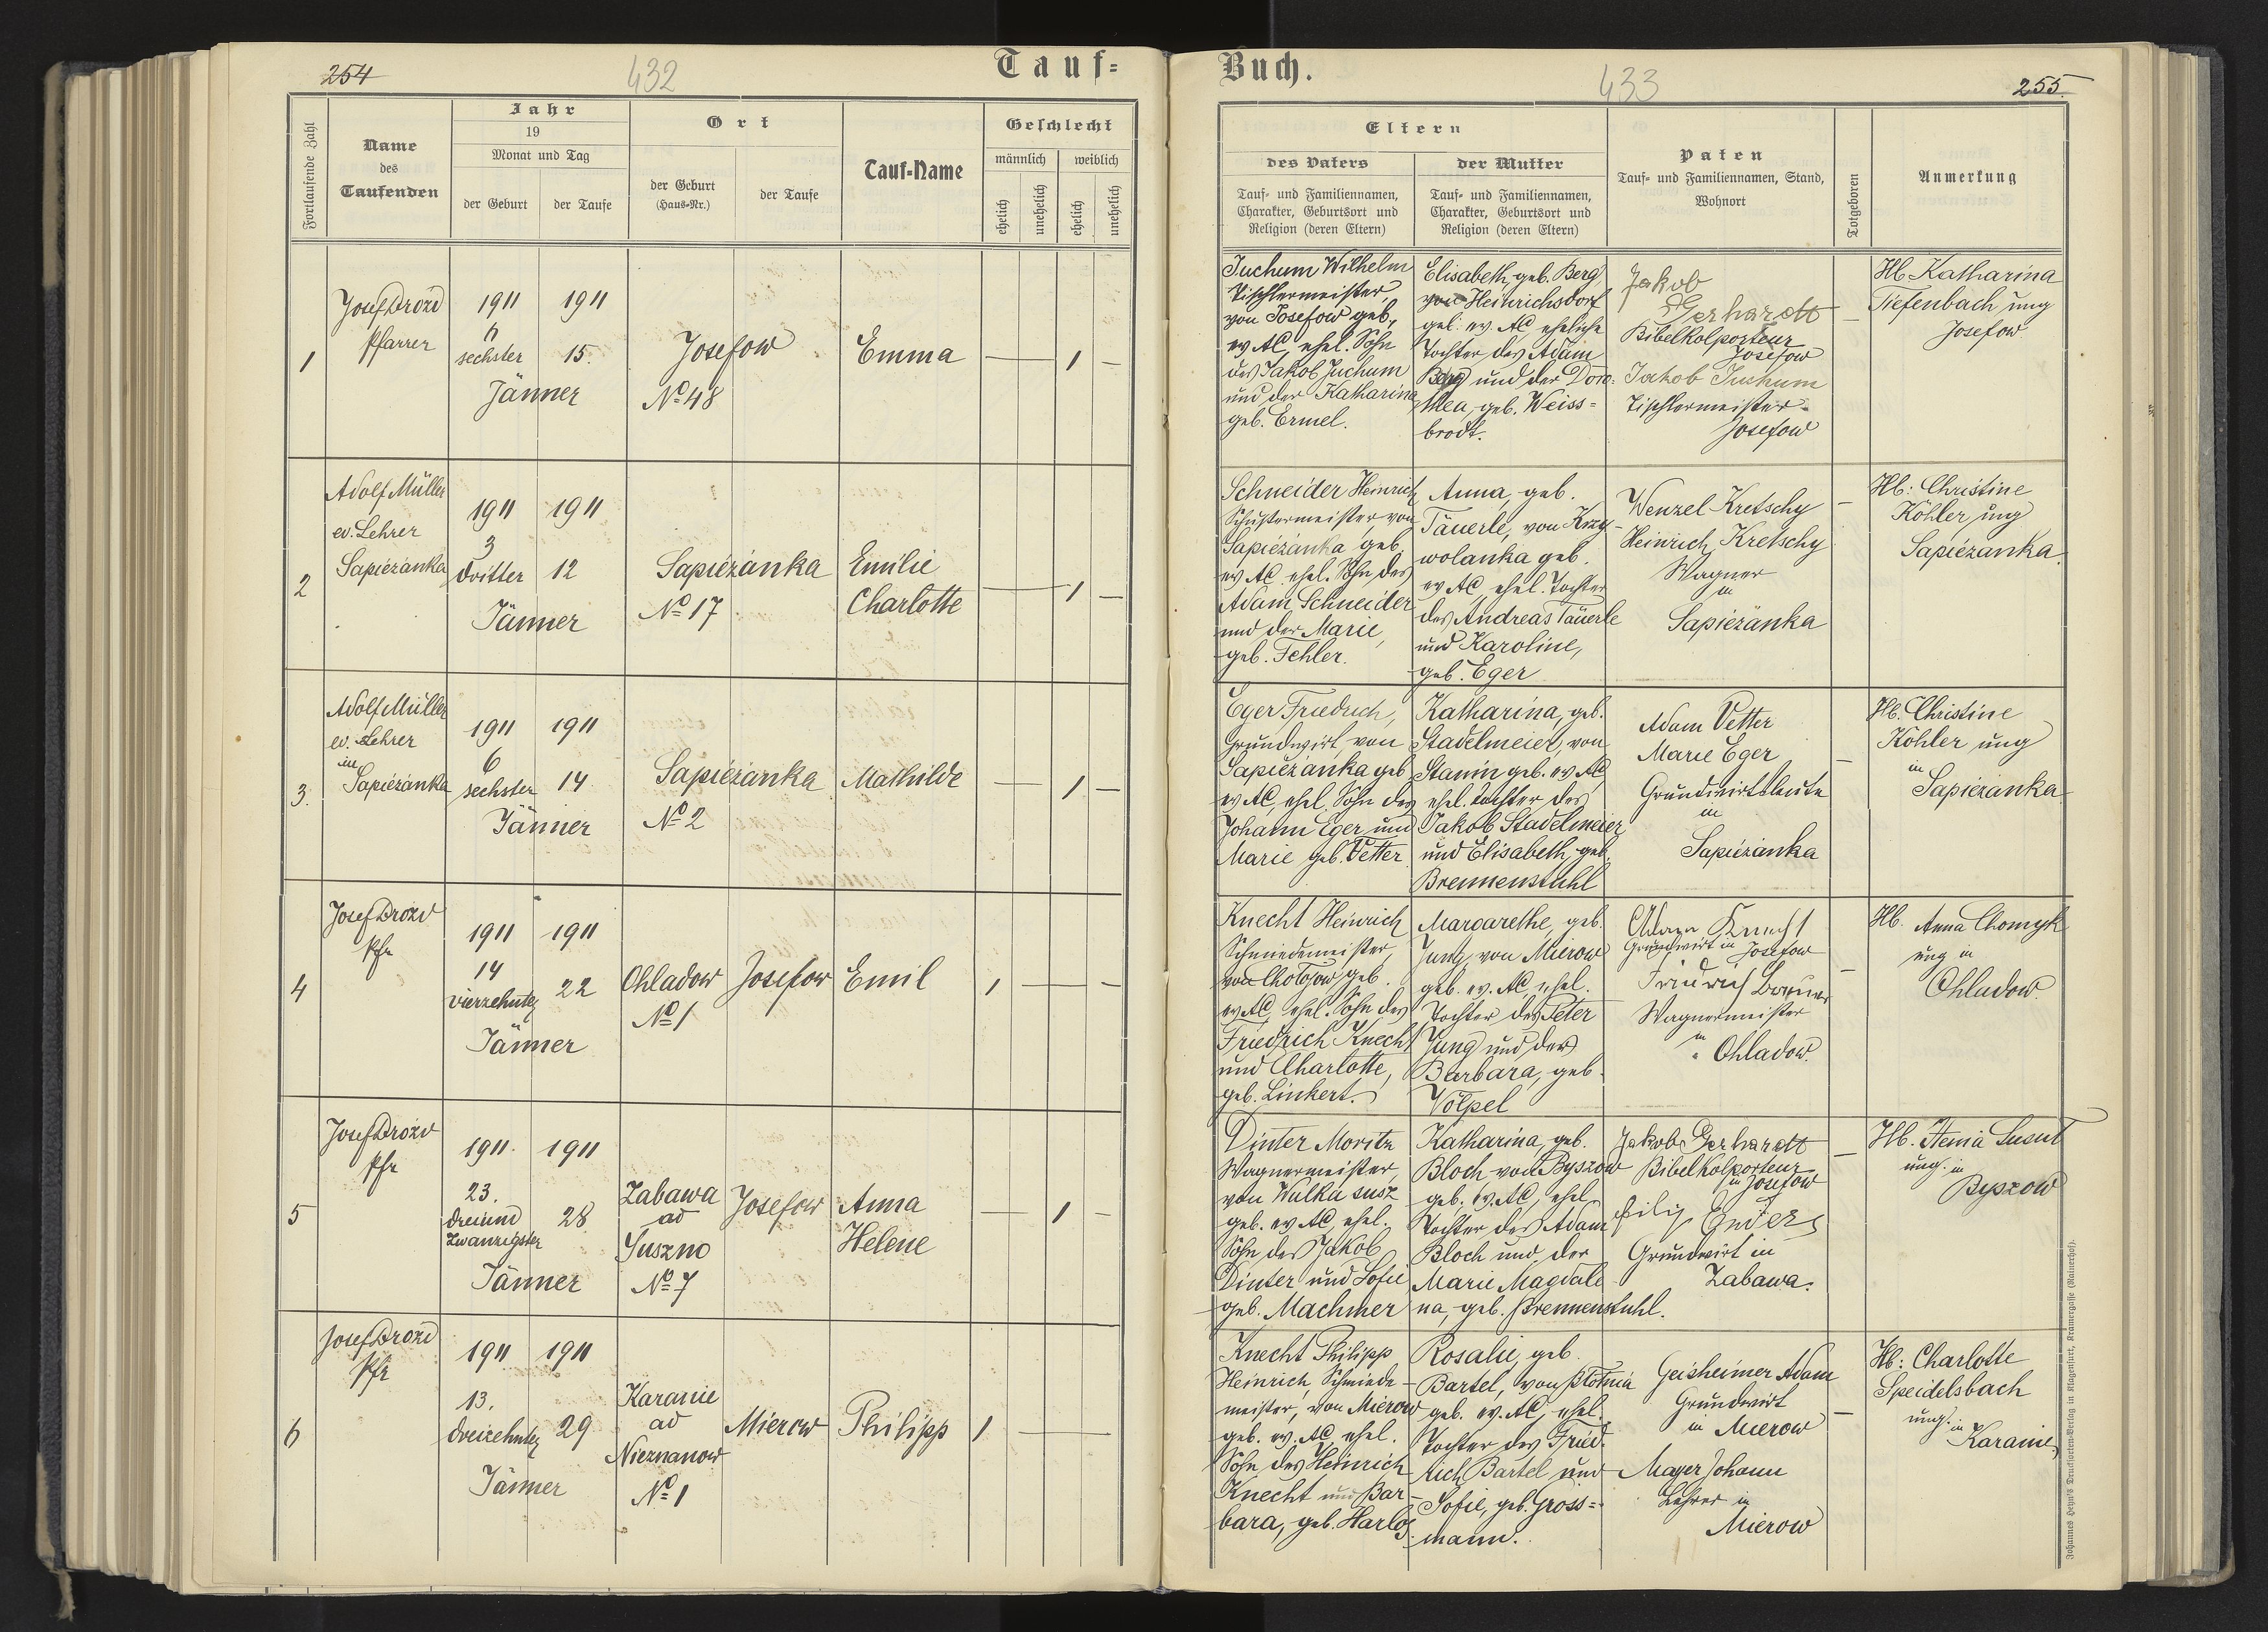 254
432
Tauf-
Fortlaufende Zahl
Name
des
Taufenden
Jahr
19
Monat und Tag
der Geburt
der Taufe
Ort
der Geburt
(Haus-Nr.)
der Taufe
Tauf-Name
Geschlecht
männlich
weiblich
ehelich
unehelich
ehelich
unehelich
1
Josef Drozd
Pfarrer
1911 1911
6
sechster 15.
Jänner
Josefow
No 48
Emma
— 1 —
2
Adolf Müller
ev. Lehrer
Sapiezanka
1911 1911
3
dritter 12
Jänner
Sapiezanka
No 17
Emilie
Charlotte
— 1 —
3.
Adolf Müller
ev. Lehrer
in
Sapiezanka
1911 1911
6
sechster 14
Jänner
Sapiezanka
No 2
Mathilde
— 1 —
4
Josef Drozd
Pfr
1911 1911
14
vierzehnter 22
Jänner
Ohladow
No 1
Josefow
Emil
1 — —
5
Josef Drozd
Pfr
1911. 1911
23.
dreiund
zwanzigster 28
Jänner
Zabawa
ad
Suszno
No 7
Josefow
Anna
Helene
— 1 —
6
Josef Drozd
Pfr
1911 1911
13.
dreizehnter 29
Jänner
Karanie
ad
Nieznanow
No 1
Mierow
Philipp
1 —
Buch.
433
255.
Eltern
des Vaters
Tauf- und Familiennamen,
Charakter, Geburtsort und
Religion (deren Eltern)
der Mutter
Tauf- und Familiennamen,
Charakter, Geburtsort und
Religion (deren Eltern)
Paten
Tauf- und Familiennamen, Stand,
Wohnort
Totgeboren
Anmerkung
Juchum Wilhelm
Tischlermeister,
von Josefow geb.,
ev AC, ehel. Sohn
des Jakob Juchum
und der Katharina
geb. Ermel.
Elisabeth, geb. Berg,
von Heinrichsdorf
geb. ev. AC eheliche
Tochter des Adam
Berg und der Doro-
thea, geb. Weiss=
brodt.
Jakob
Gerhardt
Bibelkolporteur
Josefow
Jakob Juchum
Tischlermeister
Josefow
—
Hb Katharina
Tiefenbach ung
Josefow
Schneider Heinrich
Schustermeister, von
Sapiezanka geb.
ev AC ehel. Sohn des
Adam Schneider
und der Marie,
geb. Fehler.
Anna, geb.
Täuerle, von Krzy-
wolanka geb.
ev AC, ehel. Tochter
des Andreas Täuerle
und Karoline,
geb. Eger
Wenzel Kretschy
Heinrich Kretschy
Wagner
in
Sapiezanka
—
Hb: Christine
Köhler ung
Sapiezanka.
Eger Friedrich,
Grundwirt, von
Sapiezanka geb
ev AC, ehel. Sohn des
Johann Eger und
Marie geb. Vetter
Katharina, geb.
Stadelmeier, von
Stanin geb. ev AC,
ehel. Tochter des
Jakob Stadelmeier
und Elisabeth, geb.
Brennenstuhl
Adam Vetter
Marie Eger
Grundwirtsleute
in
Sapiezanka
—
Hb. Christine
Köhler ung
in
Sapiezanka
Knecht Heinrich
Schmiedemeister,
von geb.
ev AC, ehel. Sohn des
Friedrich Knecht
und Charlotte,
geb. Linkert.
Margarethe, geb.
Jung, von Mierow
geb. ev. AC, ehel.
Tochter des Peter
Jung und der
Barbara, geb.
Völpel
Adam Knecht
Grundwirt in Josefow
Friedrich
Wagnermeister
in
Ohladow.
—
Hb. Anna Chomyk
ung in
Ohladow.
Dinter Moritz
Wagnermeister,
von Wulka susz
geb. ev AC, ehel.
Sohn des Jakob
Dinter und Sofie
geb. Machmer
Katharina, geb.
Bloch von Byszow
geb. ev. AC, ehel.
Tochter des Adam
Bloch und der
Marie Magdale
na, geb. Brennenstuhl.
Jakob Gerhardt
Bibelkolporteur
in Josefow
Enders
Grundwirt in
Zabawa.
—
Hb. Susut
ung. in
Byszow
Knecht Philipp
Heinrich, Schmiede-
meister, von Mierow
geb. ev. AC ehel.
Sohn des Heinrich
Knecht und Bar-
bara, geb. Harlos.
Rosalie, geb.
Bartel, von
geb. ev. AC, ehel.
Tochter des Fried.
rich Bartel und
Sofie, geb. Gross=
mann.
Geisheimer Adam
Grundwirt
in Mierow
Mayer Johann
Lehrer in
Mierow
—
Hb: Charlotte
Speidelsbach
ung. in
Karanie
Johannes Heyn's Drucksorten-Verlag in Klagenfurt, Kramergasse (Rainerhof).